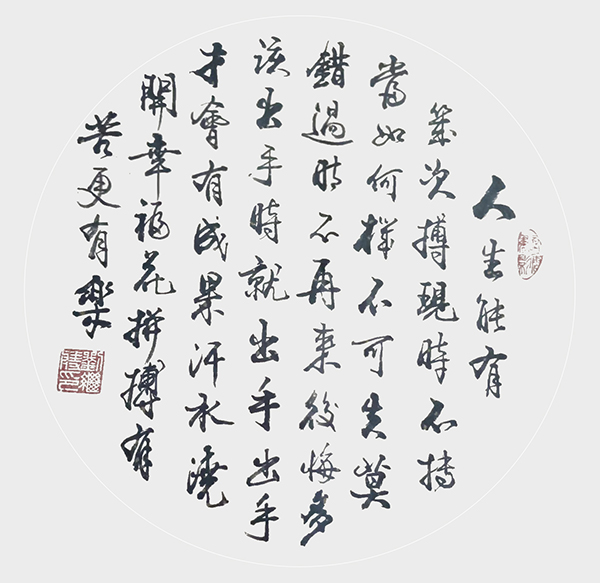 人生能有
幾次搏現時不搏
當如何機不可失莫
錯過時不再來後悔多
該出手時就出手出手
才會有成果汗水澆
開幸福花拼搏有
苦更有樂